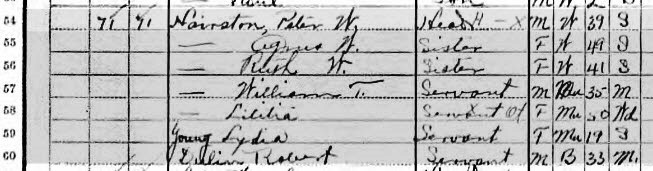 54 71 71 Hairston, Peter W. Head H - X M W 39 S
55 — Agnes W. Sister F W 49 S
56 — Ruth W. Sister F W 41 S
57 — William T. Servant M Mu 35 M
58 — Servant F Mu 50 Wd
59 Young Lydia Servant F Mu 19 S
60 Robert Servant M B 33 M.